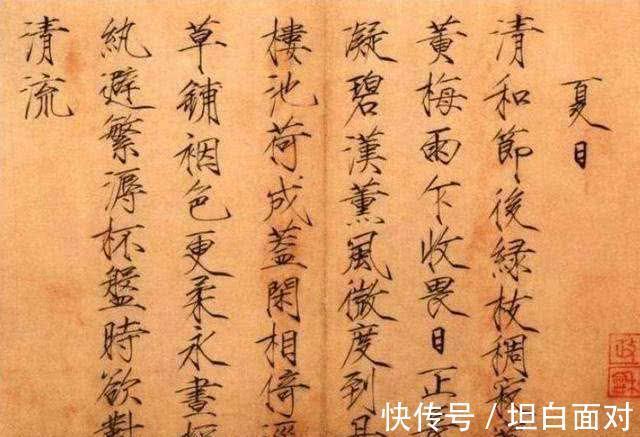 夏日
清和節後綠枝稠寂
黃梅雨乍收畏日正
凝碧漢薰風微度到丹
樓池荷成蓋閑相倚逕
草鋪裀色更柔永晝搖
紈避繁溽杯盤時欲對
清流
快传号 / 坦白面对